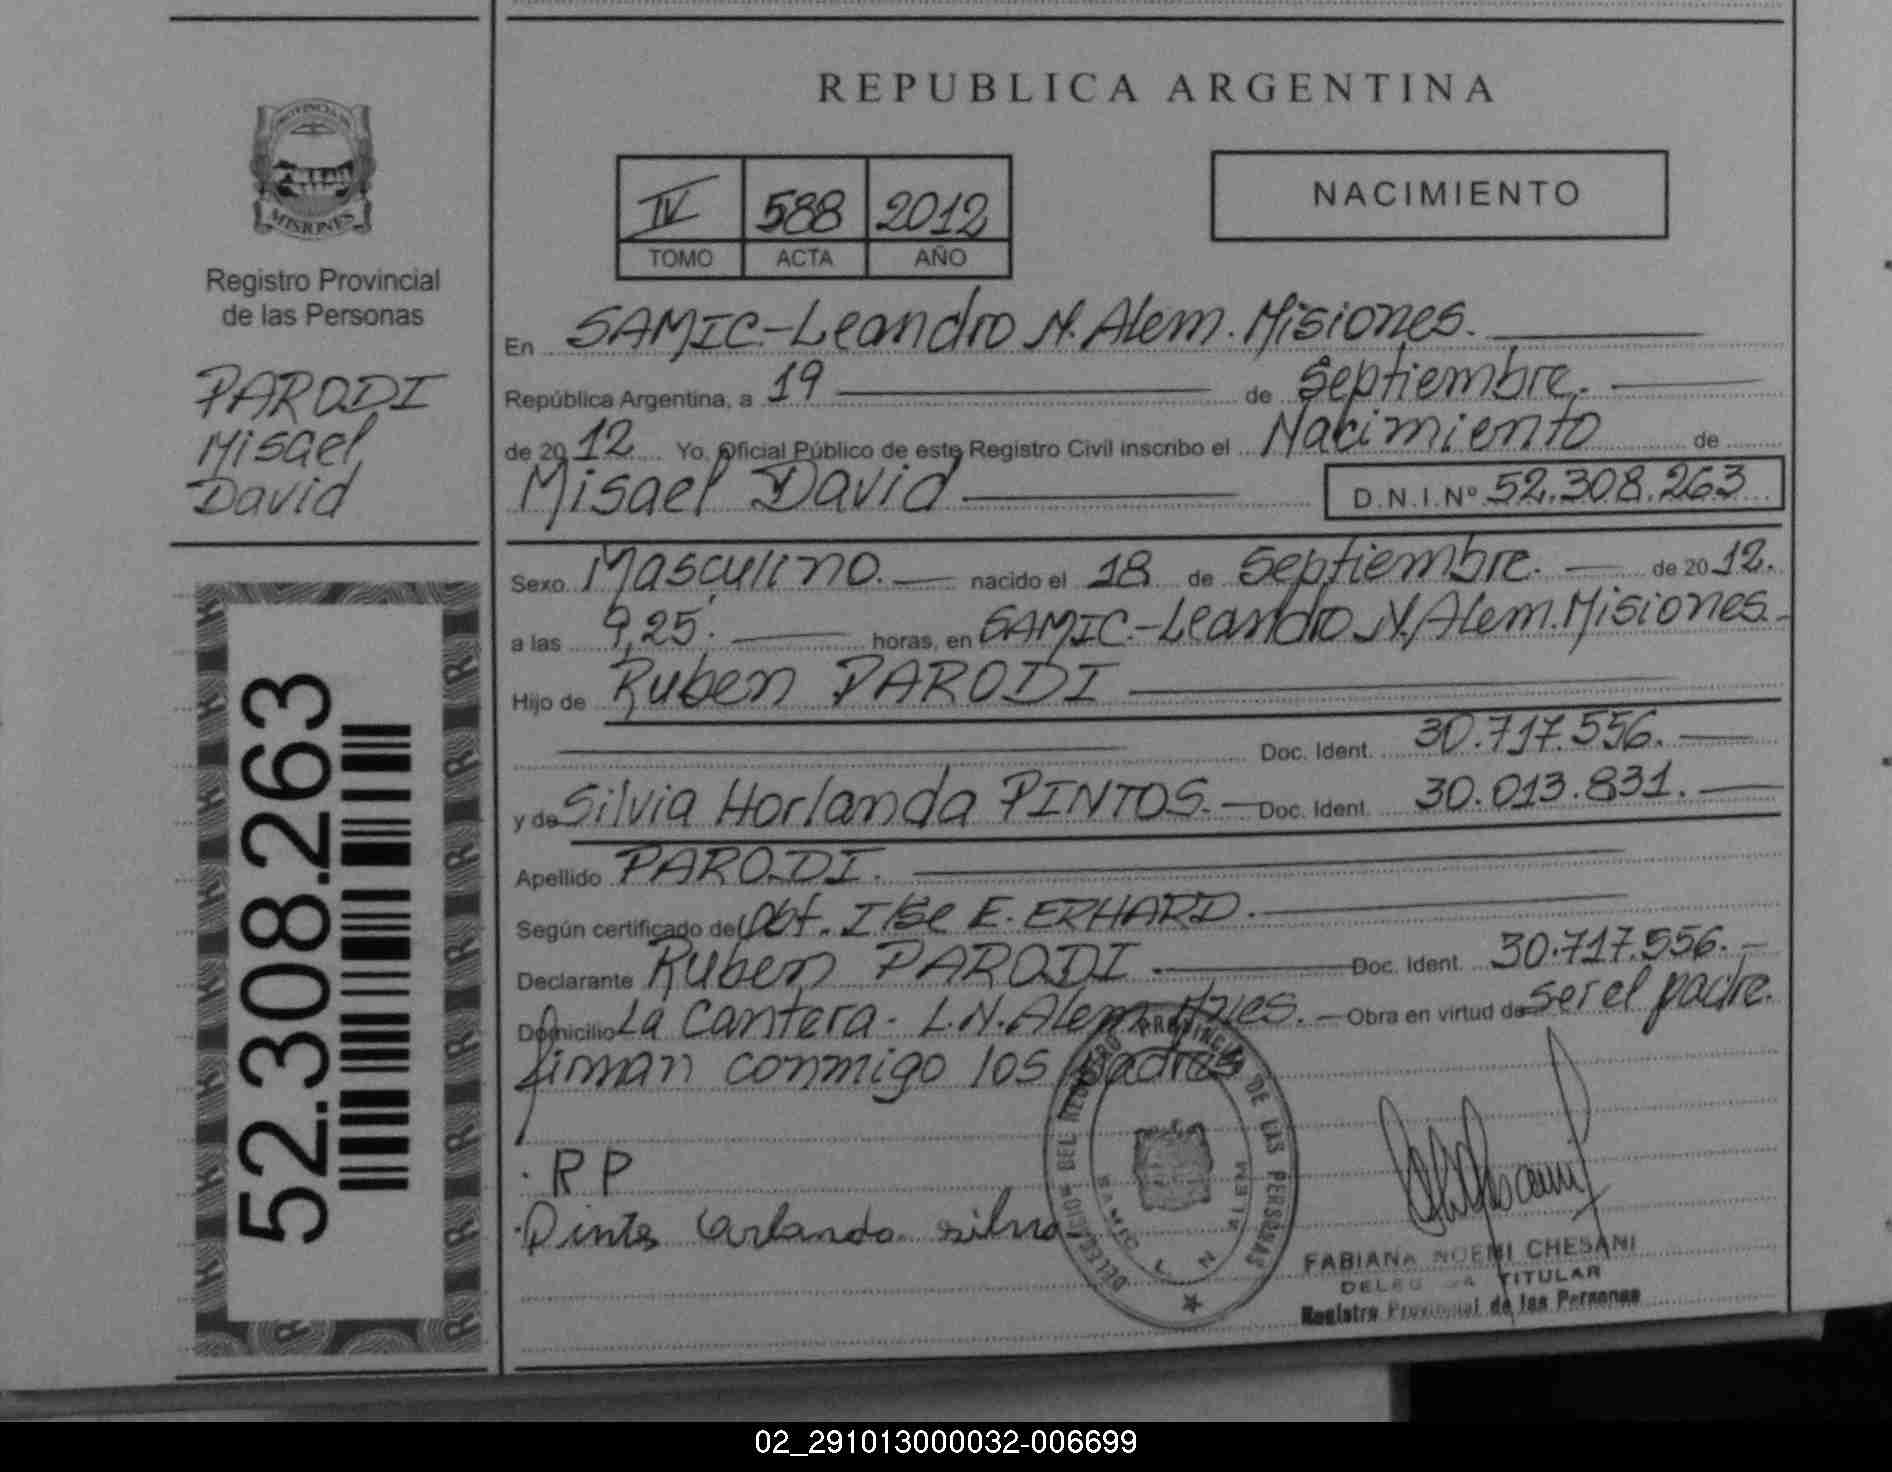 REPUBLICA ARGENTINA
PROVINCIA DE
MISIONES
Registro Provincial
de las Personas
PARODI
Misael
David
52.308.263
IV 588 2012
TOMO ACTA AÑO
NACIMIENTO
En SAMIC-Leandro N. Alem. Misiones.
República Argentina, a 19 de Septiembre.
de 2012 Yo, Oficial Público de este Registro Civil inscribo el Nacimiento de
Misael David D.N.I.Nº 52.308.263
Sexo Masculino. nacido el 18 de Septiembre. de 2012.
a las 9,25. horas, en SAMIC.-Leandro N. Alem. Misiones.-
Hijo de Ruben PARODI
Doc. Ident. 30.717.556.
y de Silvia Horlanda PINTOS. Doc. Ident. 30.013.831.
Apellido PARODI.
Según certificado del Obt. Ilse E. ERHARD.
Declarante Ruben PARODI. Doc. Ident. 30.717.556.-
Domicilio La Cantera- L.N. Alem Obra en virtud de ser el padre.
firman conmigo los padres
DELEGACION DEL REGISTRO PROVINCIAL DE LAS PERSONAS
SAMIC L. N. ALEM
R P
FABIANA NOEMI CHESANI
DELEGADA TITULAR
Registro Provincial de las Personas
02_291013000032-006699